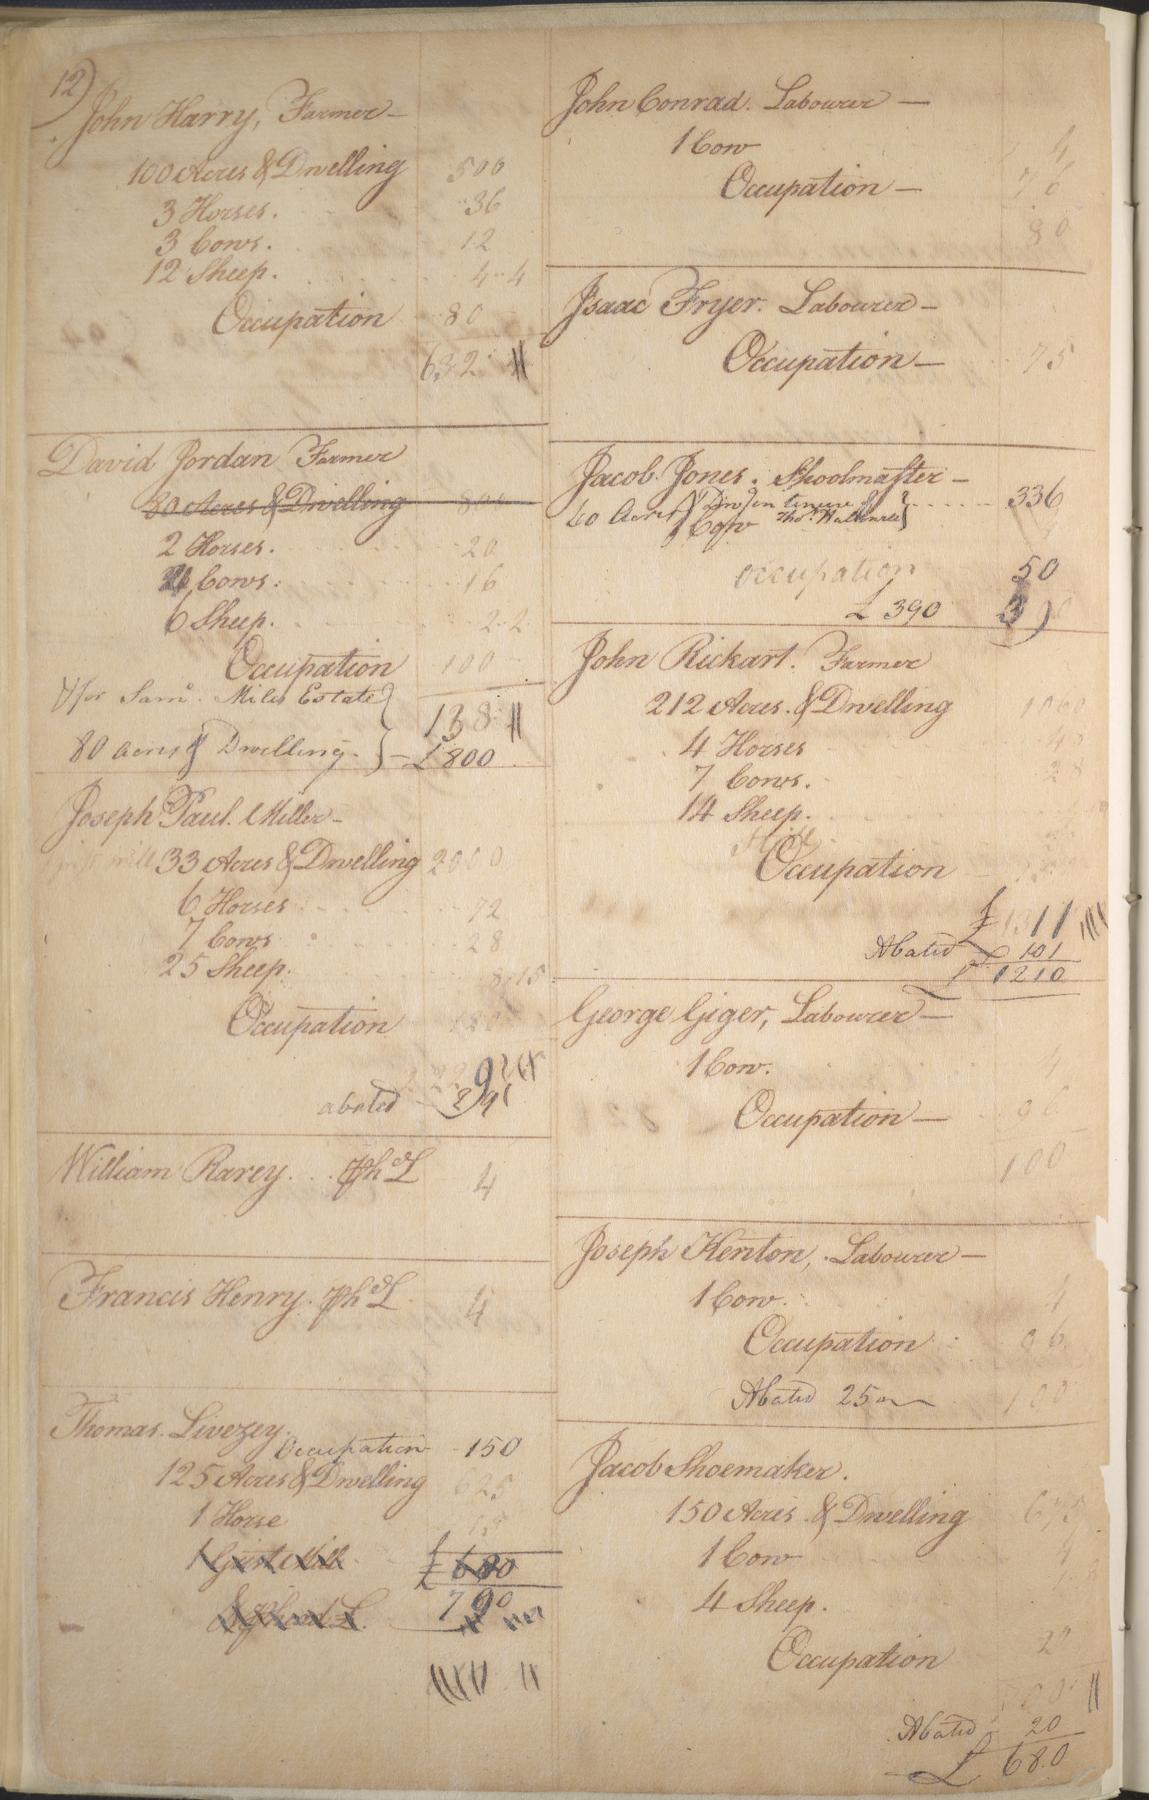 12)
John Harry, Farmer —
100 Acres & Dwelling 500
3 Horses. 36
3 Cows. 12
12 Sheep. 4 . 4
Occupation 80
632
David Jordan Farmer
80 Acres & Dwelling 800
2 Horses. 20
4 Cows. 16
6 Sheep. 2 . 2
Occupation 100
for Sam¹. Miles Estate }
138
80 Acres & Dwelling. } — £ 800
Joseph Paul. Miller —
33 Acres & Dwelling 2000
6 Horses 72
7 Cows 28
25 Sheep. 8 . 15
Occupation
abated
William Rarey . . . ph^d L 4
Francis Henry. ph^d L 4
Thomas. Livezey.
Occupation 150
125 Acres & Dwelling 625
1 Horse 15
1 Grist Mill
£ 680
£ 790
John Conrad. Labourer —
1 Cow 4
Occupation — 76
80
Isaac Fryer. Labourer —
Occupation — 75
Jacob. Jones. Schoolmaster —
60 Acres & Dwg in tenure of } 336
Cow Tho^s.
occupation 50
£ 390
John Rickart. Farmer
212 Acres. & Dwelling 1060
4 Horses 48
7 Cows. 28
14 Sheep.
Occupation
£ 1311
Abated 101
£ 1210
George Giger, Labourer —
1 Cow. 4
Occupation — 96
100
Joseph Kenton, Labourer —
1 Cow. 4
Occupation 96
Abated 25 100
Jacob Shoemaker.
150 Acres & Dwelling
1 Cow 4
4 Sheep.
Occupation 20
700
Abated 20
£ 680